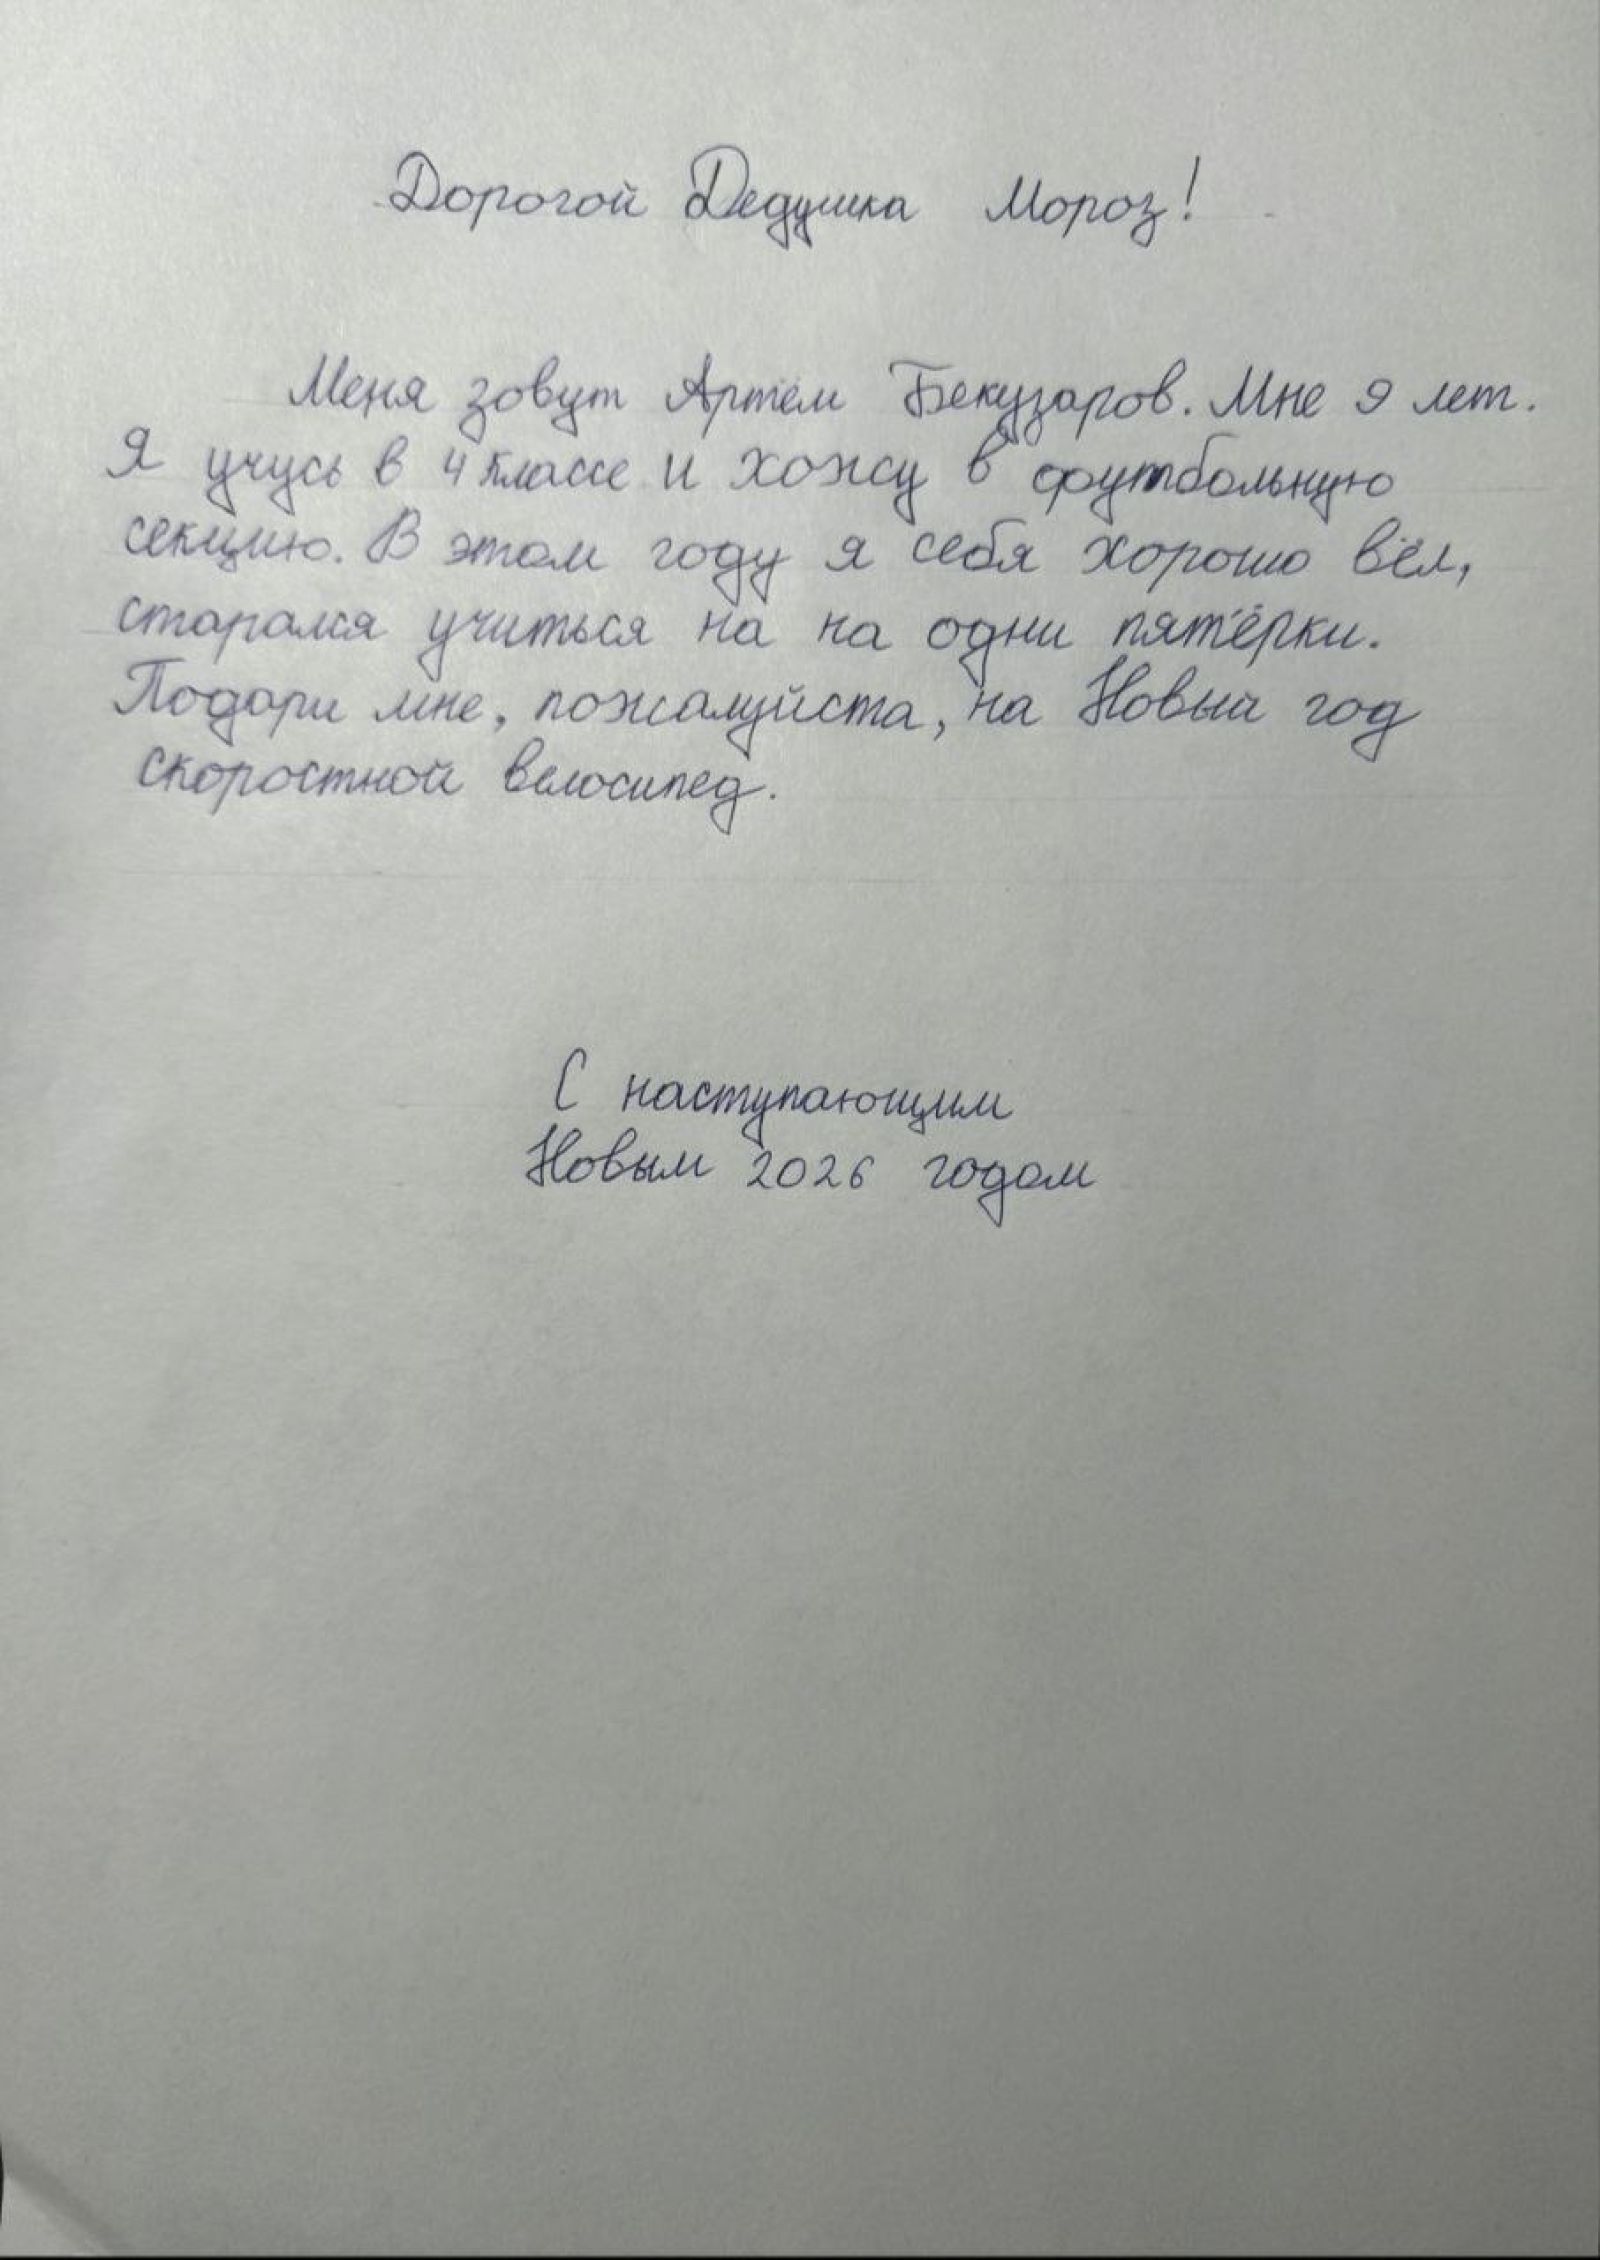 Дорогой Дедушка Мороз!
Меня зовут Артём Бекузаров. Мне 9 лет.
Я учусь в 4 классе и хожу в футбольную
секцию. В этом году я себя хорошо вёл,
старался учиться на на одни пятёрки.
Подари мне, пожалуйста, на Новый год
скоростной велосипед.
С наступающим
Новым 2026 годом